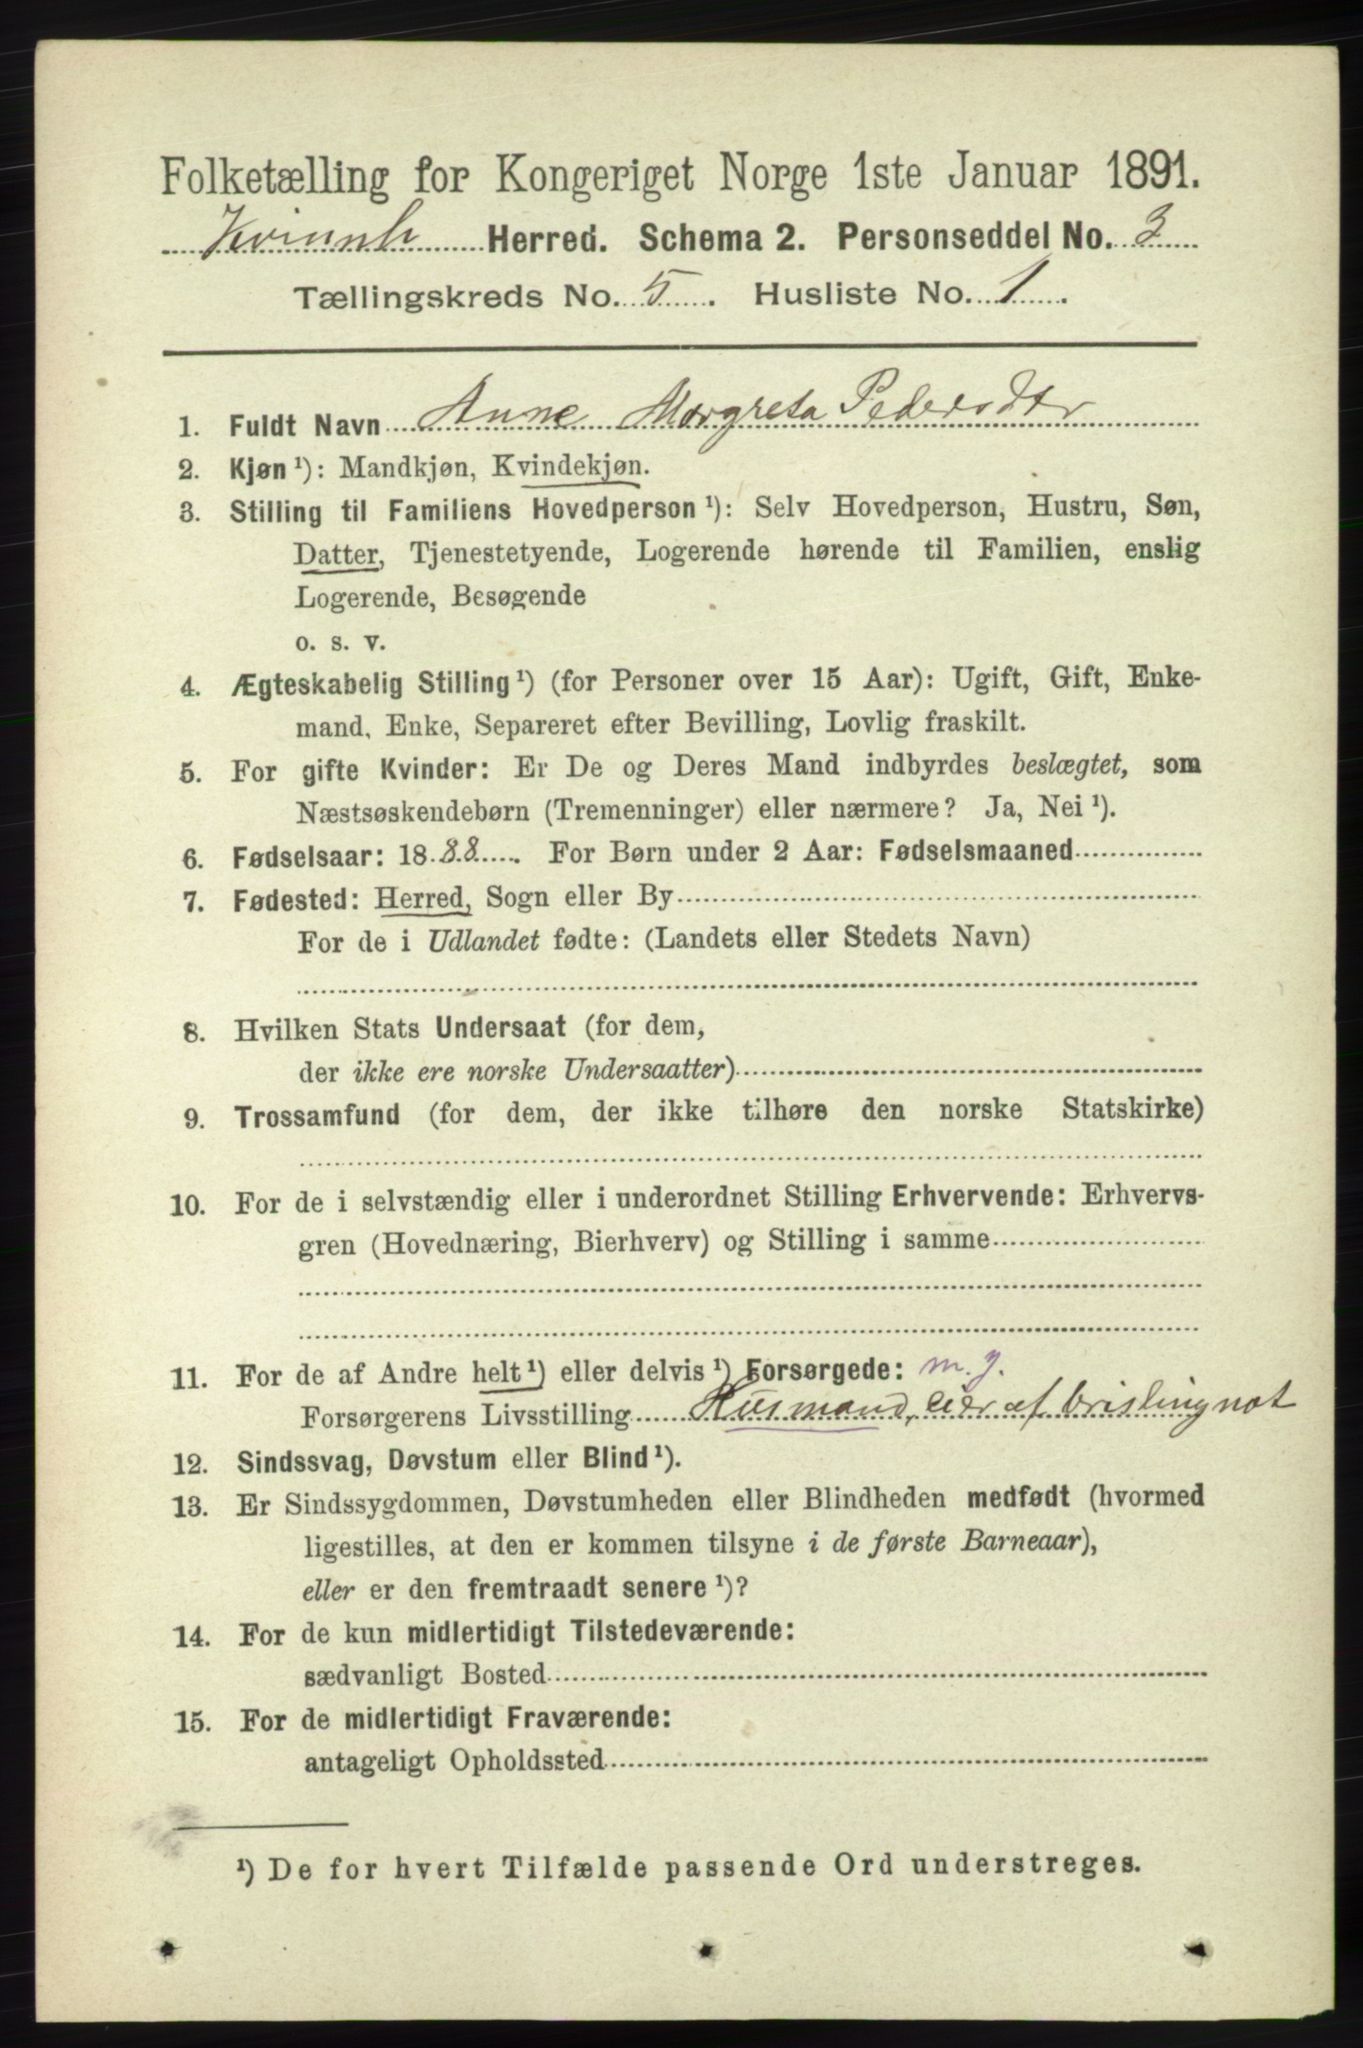 Folketælling for Kongeriget Norge 1ste Januar 1891.
Kvinnh Herred. Schema 2. Personseddel No. 3
Tællingskreds No. 5. Husliste No. 1.
1. Fuldt Navn Anne Margreta Pedersdtr
2. Kjøn ¹): Mandkjøn, Kvindekjøn.
3. Stilling til Familiens Hovedperson ¹): Selv Hovedperson, Hustru, Søn,
Datter, Tjenestetyende, Logerende hørende til Familien, enslig
Logerende, Besøgende
o. s. v.
4. Ægteskabelig Stilling ¹) (for Personer over 15 Aar): Ugift, Gift, Enke-
mand, Enke, Separeret efter Bevilling, Lovlig fraskilt.
5. For gifte Kvinder: Er De og Deres Mand indbyrdes beslægtet, som
Næstsøskendebørn (Tremenninger) eller nærmere? Ja, Nei ¹).
6. Fødselsaar: 1888. For Børn under 2 Aar: Fødselsmaaned
7. Fødested: Herred, Sogn eller By
For de i Udlandet fødte: (Landets eller Stedets Navn)
8. Hvilken Stats Undersaat (for dem,
der ikke ere norske Undersaatter)
9. Trossamfund (for dem, der ikke tilhøre den norske Statskirke)
10. For de i selvstændig eller i underordnet Stilling Erhvervende: Erhvervs-
gren (Hovednæring, Bierhverv) og Stilling i samme
11. For de af Andre helt ¹) eller delvis ¹) Forsørgede: m. j.
Forsørgerens Livsstilling Husmand, eier af brislingnot
12. Sindssvag, Døvstum eller Blind ¹).
13. Er Sindssygdommen, Døvstumheden eller Blindheden medfødt (hvormed
ligestilles, at den er kommen tilsyne i de første Barneaar),
eller er den fremtraadt senere ¹)?
14. For de kun midlertidigt Tilstedeværende:
sædvanligt Bosted
15. For de midlertidigt Fraværende:
antageligt Opholdssted
¹) De for hvert Tilfælde passende Ord understreges.